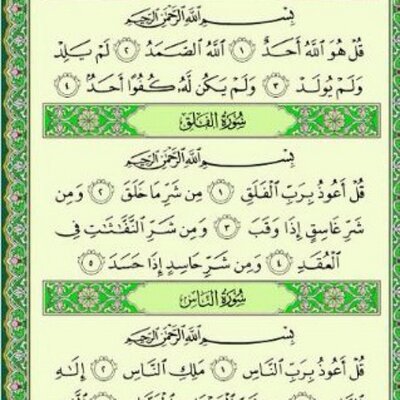 بِسْمِ ٱللَّهِ ٱلرَّحْمَٰنِ ٱلرَّحِيمِ
قُلْ هُوَ ٱللَّهُ أَحَدٌ ١ ٱللَّهُ ٱلصَّمَدُ ٢ لَمْ يَلِدْ
وَلَمْ يُولَدْ ٣ وَلَمْ يَكُن لَّهُۥ كُفُوًا أَحَدٌۢ ٤
سُورَةُ الفَلَقِ
بِسْمِ ٱللَّهِ ٱلرَّحْمَٰنِ ٱلرَّحِيمِ
قُلْ أَعُوذُ بِرَبِّ ٱلْفَلَقِ ١ مِن شَرِّ مَا خَلَقَ ٢ وَمِن
شَرِّ غَاسِقٍ إِذَا وَقَبَ ٣ وَمِن شَرِّ ٱلنَّفَّٰثَٰتِ فِى
ٱلْعُقَدِ ٤ وَمِن شَرِّ حَاسِدٍ إِذَا حَسَدَ ٥
سُورَةُ النَّاسِ
بِسْمِ ٱللَّهِ ٱلرَّحْمَٰنِ ٱلرَّحِيمِ
قُلْ أَعُوذُ بِرَبِّ ٱلنَّاسِ ١ مَلِكِ ٱلنَّاسِ ٢ إِلَٰهِ